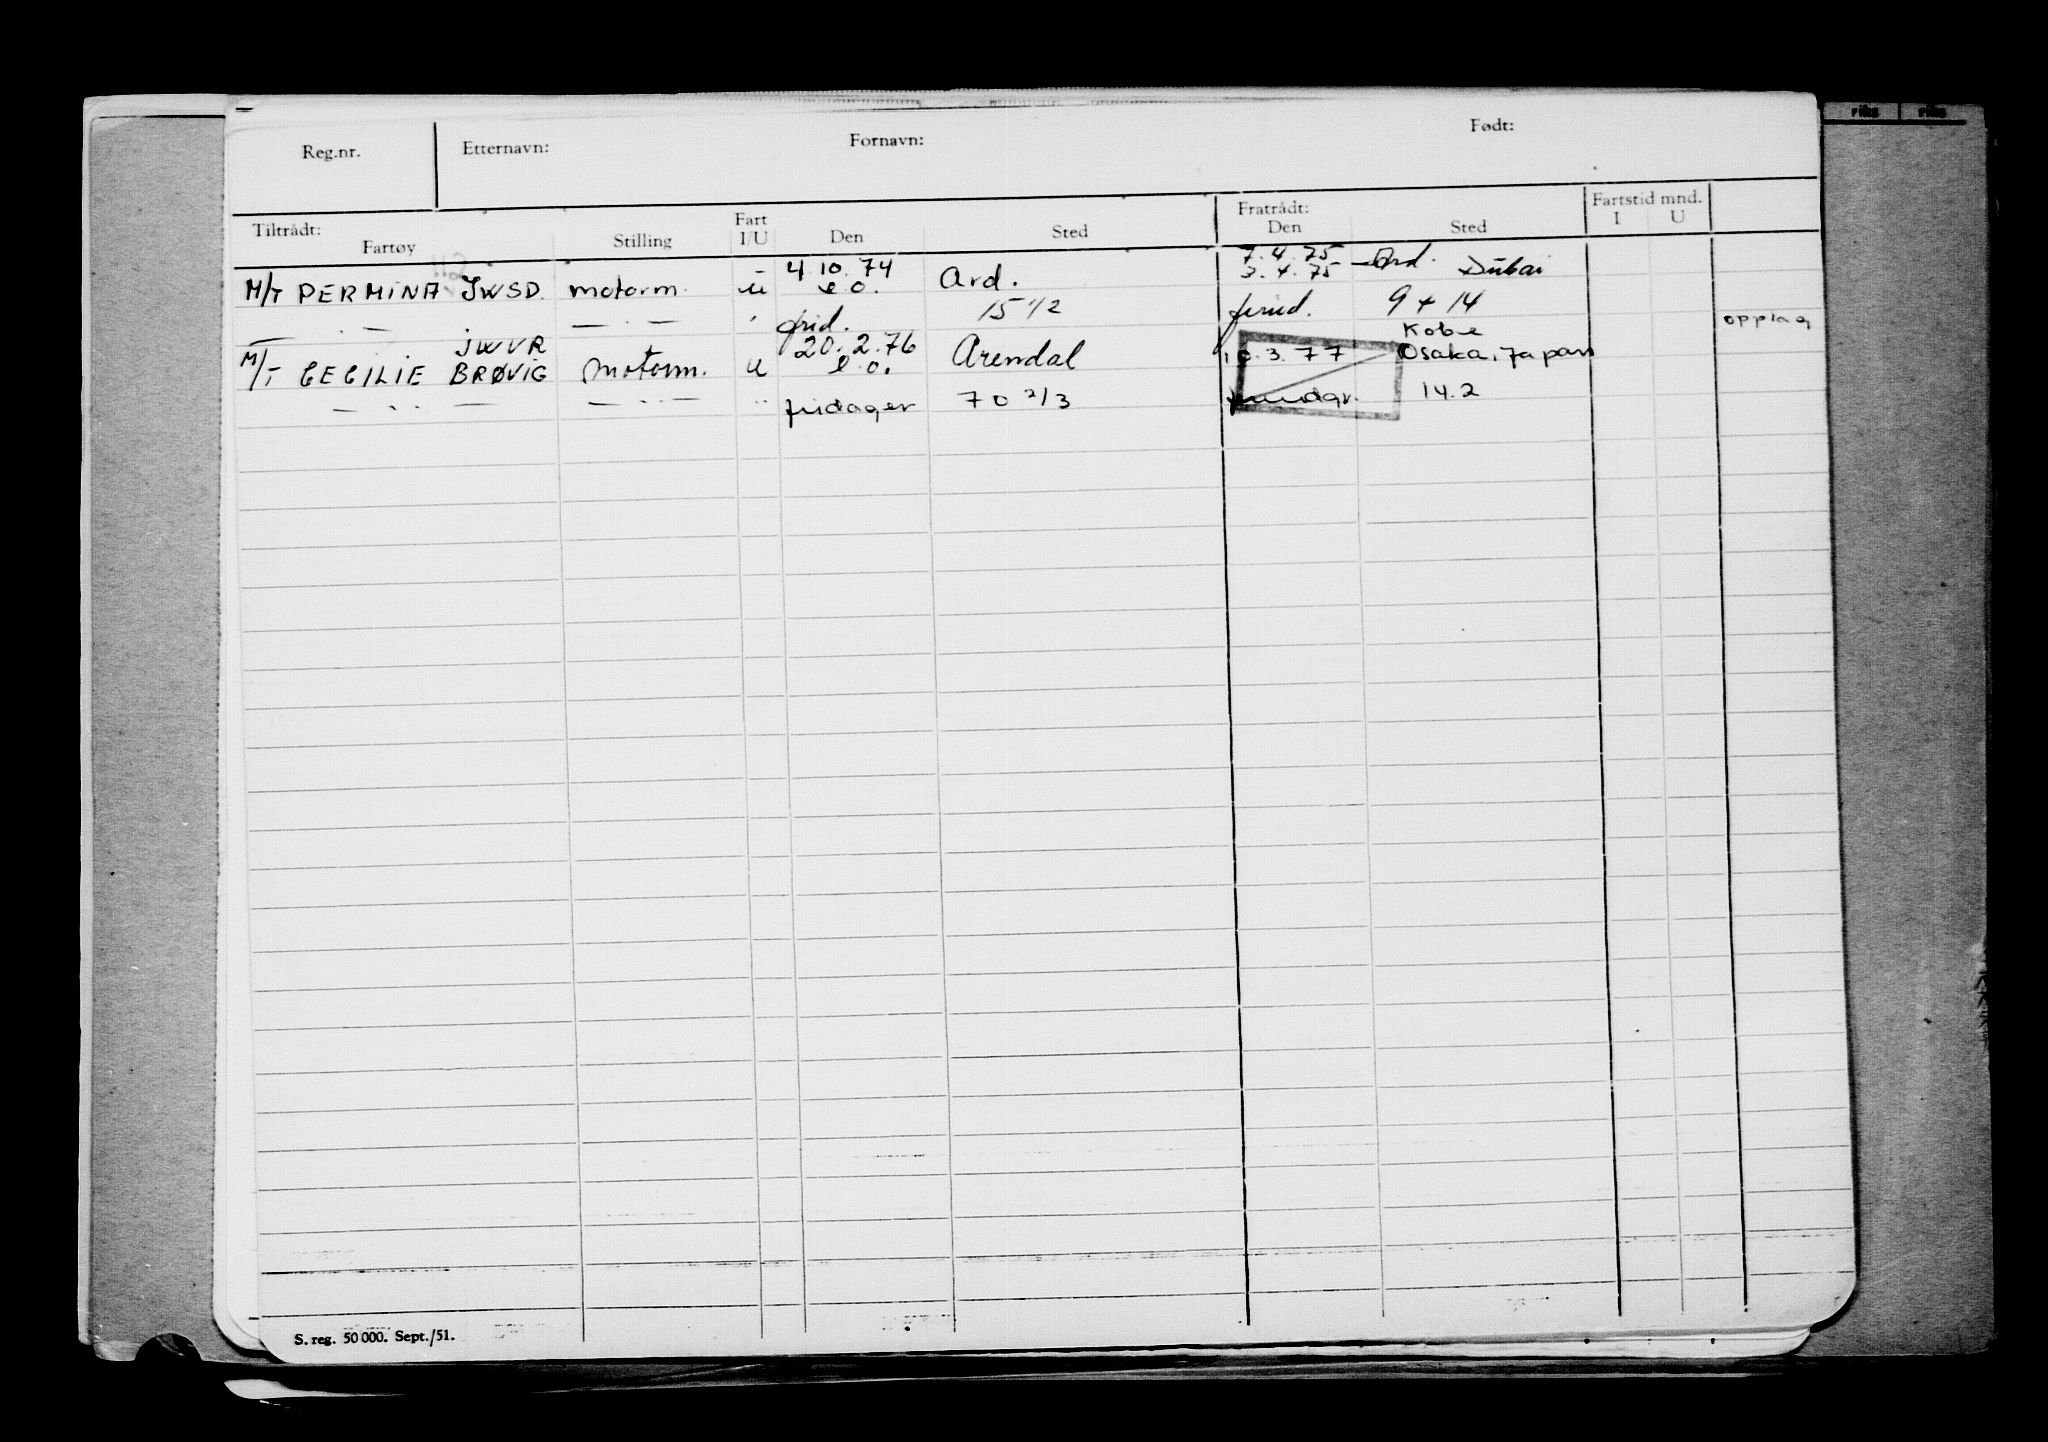 Reg.nr. Etternavn: Fornavn: Født:
Tiltrådt: Fartøy Stilling Fart I/U Den Sted Fratrådt: Den Sted Fartstid mnd. I U
4.10.74 7.4.75 Ard.
M/T PERMINA JWSD. motorm. u e.o. Ard. 3.4.75 Dubai
— . — — . — frid. 15 1/2 9 + 14
JWVR 20.2.76 Kobe opplag
M/T CECILIE BRØVIG motorm. u e.o. Arendal 10.3.77 Osaka, Japan
— .. — — . — " fridager 70 2/3 14.2
S. reg. 50 000. Sept./51.